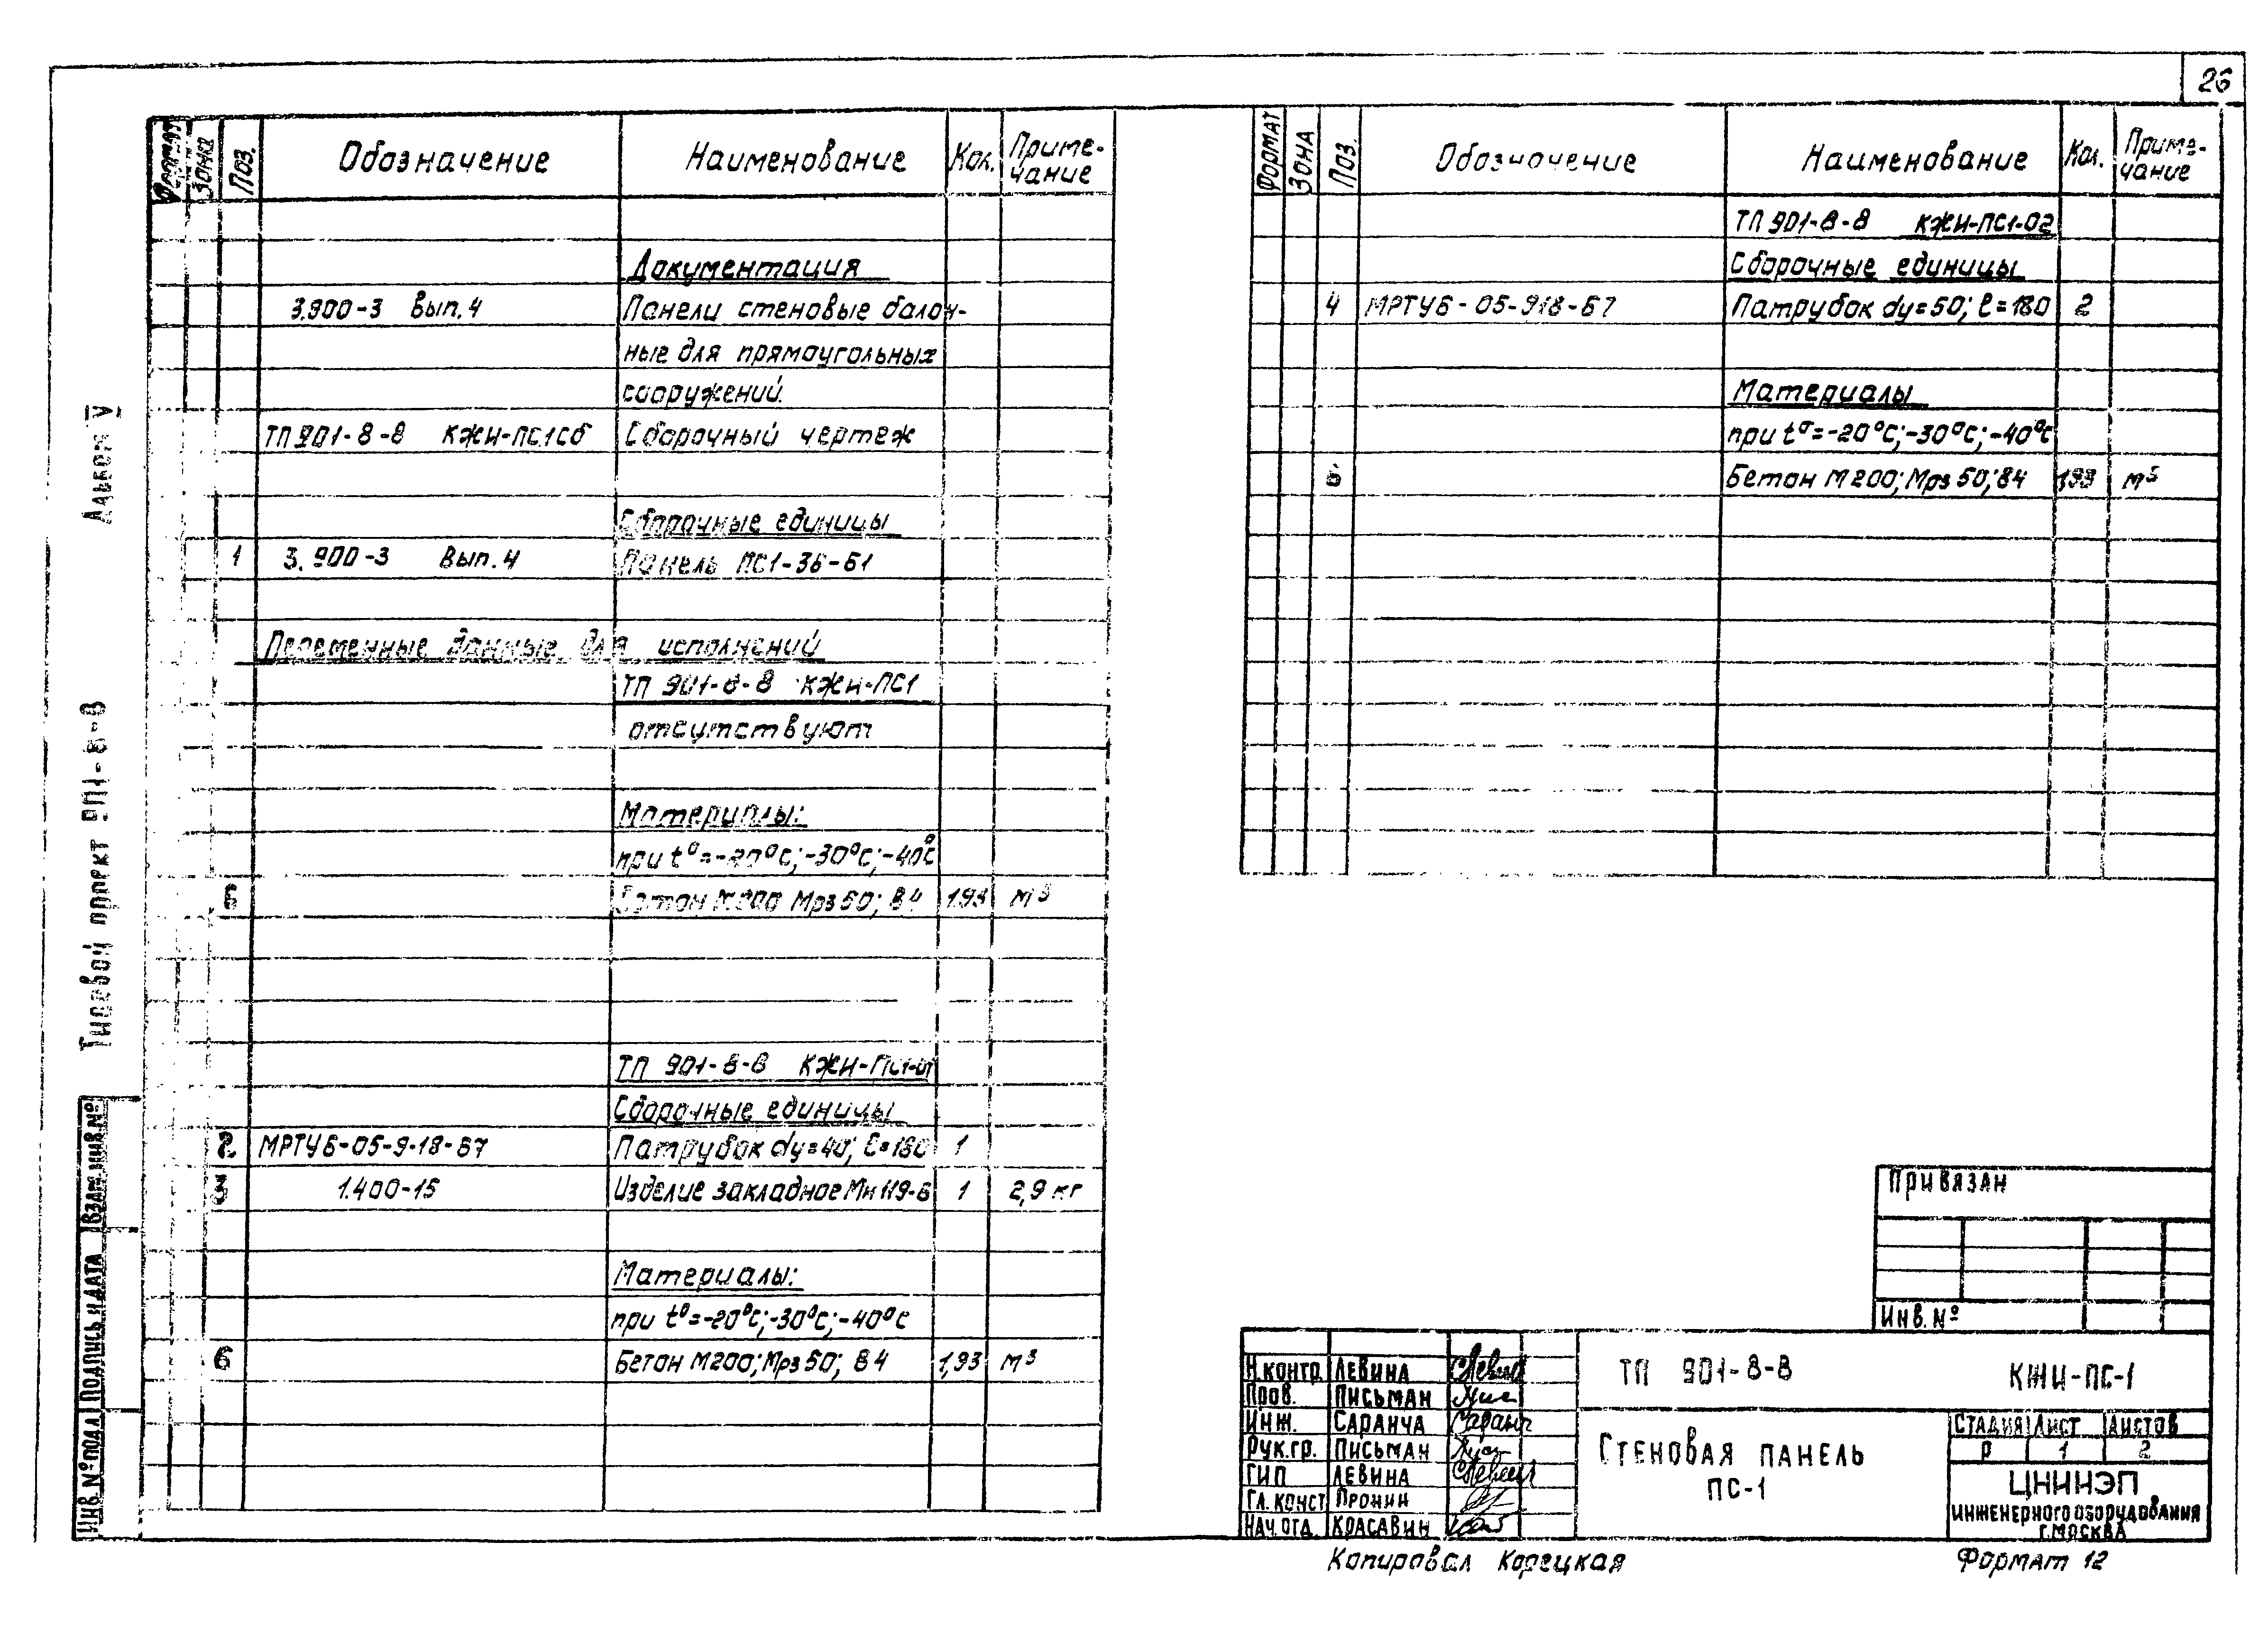 26
Альбом V
Типовой проект 901-8-8
Взам.инв.№
Подпись и дата
Инв.№подл
Формат Зона Поз. Обозначение Наименование Кол. Приме-
чание
Документация
3.900-3 Вып.4 Панели стеновые балоч-
ные для прямоугольных
сооружений.
ТП 901-8-8 КЖИ-ПС1Сб Сборочный чертеж
Сборочные единицы
1 3.900-3 Вып.4 Панель ПС1-36-Б1
Переменные данные для исполнений
ТП 901-8-8 КЖИ-ПС1
отсутствуют
Материалы:
при t°=-20°С;-30°С;-40°С
6 Бетон М200 Мрз50; В4 1,93 м³
ТП 901-8-8 КЖИ-ПС1-01
Сборочные единицы
2 МРТУ6-05-918-67 Патрубок dy=40; ℓ=180 1
3 1.400-15 Изделие закладное Мн119-6 1 2,9 кг
Материалы:
при t°=-20°С;-30°С;-40°С
6 Бетон М200; Мрз50; В4 1,93 м³
Формат Зона Поз. Обозначение Наименование Кол. Приме-
чание
ТП 901-8-8 КЖИ-ПС1-02
Сборочные единицы
4 МРТУ6-05-918-67 Патрубок dy=50; ℓ=180 2
Материалы
при t°=-20°С;-30°С;-40°С
6 Бетон М200; Мрз50; В4 1,93 м³
Привязан
Инв.№
Н.контр. Левина
Пров. Письман
Инж. Саранча
Рук.гр. Письман
ГИП Левина
Гл.конст Пронин
Нач.отд. Красавин
ТП 901-8-8 КЖИ-ПС-1
Стеновая панель
ПС-1
Стадия Лист Листов
Р 1 2
ЦНИИЭП
инженерного оборудования
г.Москва
Копировал Корецкая Формат 12